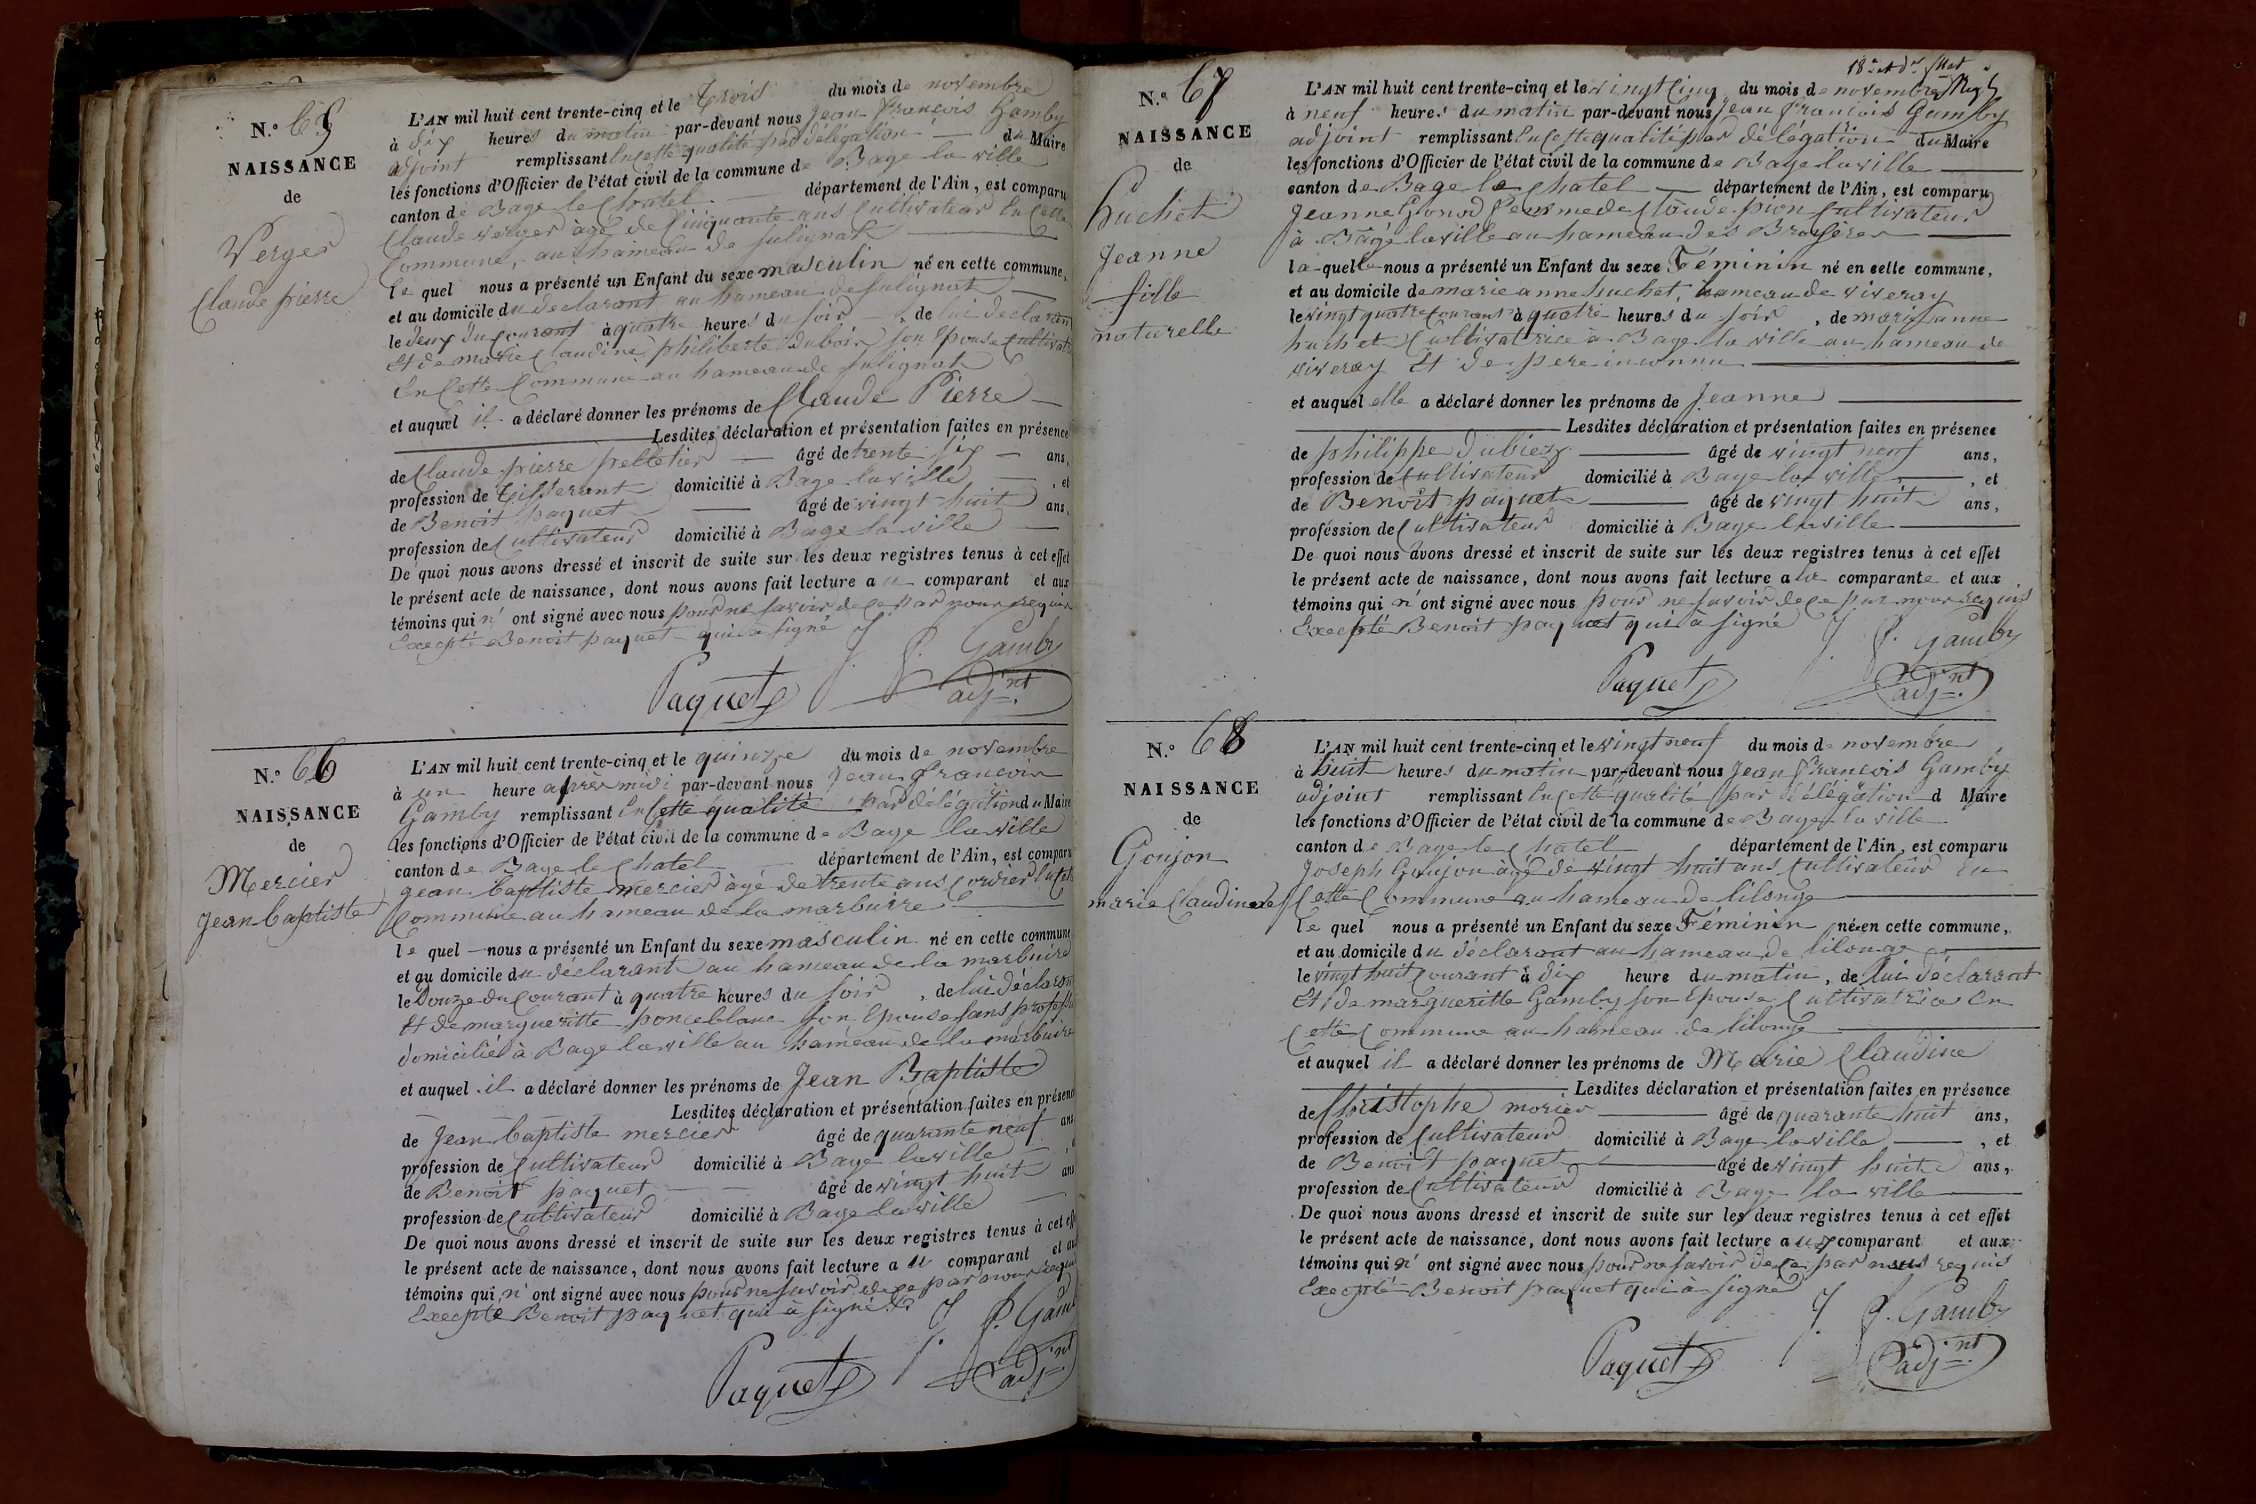 N.º 65
NAISSANCE
de
Verger
Claude pierre
L'AN mil huit cent trente-cinq et le trois du mois de novembre
à dix heures du matin par-devant nous Jean François Gamby
adjoint remplissant en cette qualité par délégation du Maire
les fonctions d'Officier de l'état civil de la commune de Bage la ville
canton de Bage le Chatel département de l'Ain, est comparu
Claude verger âgé de Cinquante ans Cultivateur en Cette
Commune, au hameau de
le quel nous a présenté un Enfant du sexe masculin né en cette commune,
et au domicile du déclarant au hameau de
le deux du courant à quatre heures du soir, de lui déclarant
et de marie Claudine philiberte dubois son Epouse Cultivat
en Cette Commune au hameau de
et auquel il a déclaré donner les prénoms de Claude Pierre
Lesdites déclaration et présentation faites en présence
de Claude pierre pelletier âgé de trente six ans,
profession de tisserant domicilié à Bage la ville, et
de Benoit paquet âgé de vingt huit ans,
profession de Cultivateur domicilié à Bage la ville
De quoi nous avons dressé et inscrit de suite sur les deux registres tenus à cet effet
le présent acte de naissance, dont nous avons fait lecture au comparant et aux
témoins qui n'ont signé avec nous pour ne savoir de ce par nous requis
Excepté Benoit paquet qui a signé
J. F. Gamby
Paquet adj.nt
N.º 66
NAISSANCE
de
Mercier
Jean baptiste
L'AN mil huit cent trente-cinq et le quinze du mois de novembre
à un heure après midi par-devant nous Jean François
Gamby remplissant en Cette qualité par délégation du Maire
les fonctions d'Officier de l'état civil de la commune de Bage la ville
canton de Bage le Chatel département de l'Ain, est comparu
Jean baptiste mercier âgé de trente ans Cordier en Cette
Commune au hameau de la marbuire
le quel nous a présenté un Enfant du sexe masculin né en cette commune
et au domicile du déclarant au hameau de la marbuire
le Douze du courant à quatre heures du soir, de lui déclarant
et de margueritte ponceblanc son Epouse sans profess
domiciliés à Bage la ville au hameau de la marbuire
et auquel il a déclaré donner les prénoms de Jean Baptiste
Lesdites déclaration et présentation faites en présence
de Jean baptiste mercier âgé de quarante neuf ans
profession de Cultivateur domicilié à Bage la ville
de Benoit paquet âgé de vingt huit ans
profession de Cultivateur domicilié à Bage la ville
De quoi nous avons dressé et inscrit de suite sur les deux registres tenus à cet eff
le présent acte de naissance, dont nous avons fait lecture au comparant et au
témoins qui n'ont signé avec nous pour ne savoir de ce par nous requi
Excepté Benoit paquet qui à signé
J. F. Gamb
Paquet adj.nt
N.º 67
NAISSANCE
de
huchet
Jeanne
fille
naturelle
L'AN mil huit cent trente-cinq et le vingt Cinq du mois de novembre
à neuf heures du matin par-devant nous Jean François Gamby
adjoint remplissant en Cette qualité par délégation du Maire
les fonctions d'Officier de l'état civil de la commune de Bage la ville
canton de Bage le Chatel département de l'Ain, est comparu
Jeanne Gonod femme de Claude pion Cultivateur
à Bâgé la ville au hameau des
la quelle nous a présenté un Enfant du sexe Féminin né en cette commune,
et au domicile de marie anne huchet, hameau de viveray
le vingt quatre courant à quatre heures du soir, de marie anne
huchet Cultivatrice à Bage la ville au hameau de
viveray et de pere inconnu
et auquel elle a déclaré donner les prénoms de Jeanne
Lesdites déclaration et présentation faites en présence
de philippe dubief âgé de vingt neuf ans,
profession de Cultivateur domicilié à Bage la ville, et
de Benoit paquet âgé de vingt huit ans,
profession de Cultivateur domicilié à Bage la ville
De quoi nous avons dressé et inscrit de suite sur les deux registres tenus à cet effet
le présent acte de naissance, dont nous avons fait lecture a la comparante et aux
témoins qui n'ont signé avec nous pour ne savoir de ce par nous requis
Excepté Benoit paquet qui à signé
J. F. Gamby
Paquet adj.nt
N.º 68
NAISSANCE
de
Goujon
marie Claudine
L'AN mil huit cent trente-cinq et le vingt neuf du mois de novembre
à huit heures du matin par-devant nous Jean François Gamby
adjoint remplissant en Cette qualité par délégation d Maire
les fonctions d'Officier de l'état civil de la commune de Bage la ville
canton de Bage le Chatel département de l'Ain, est comparu
Joseph Goujon âgé de vingt huit ans Cultivateur en
Cette Commune au hameau de lilonge
le quel nous a présenté un Enfant du sexe Féminin né en cette commune,
et au domicile du déclarant au hameau de lilonge
le vingt huit courant à dix heure du matin, de lui déclarant
et de margueritte Gamby son Epouse Cultivatrice en
Cette Commune au hameau de lilonge
et auquel il a déclaré donner les prénoms de Marie Claudine
Lesdites déclaration et présentation faites en présence
de Christophe morier âgé de quarante huit ans,
profession de Cultivateur domicilié à Bage la ville, et
de Benoit paquet âgé de vingt huit ans,
profession de Cultivateur domicilié à Bage la ville
De quoi nous avons dressé et inscrit de suite sur les deux registres tenus à cet effet
le présent acte de naissance, dont nous avons fait lecture au comparant et aux
témoins qui n'ont signé avec nous pour ne savoir de ce par nous requis
Excepté Benoit paquet qui à signé
J. F. Gamby
Paquet adj.nt